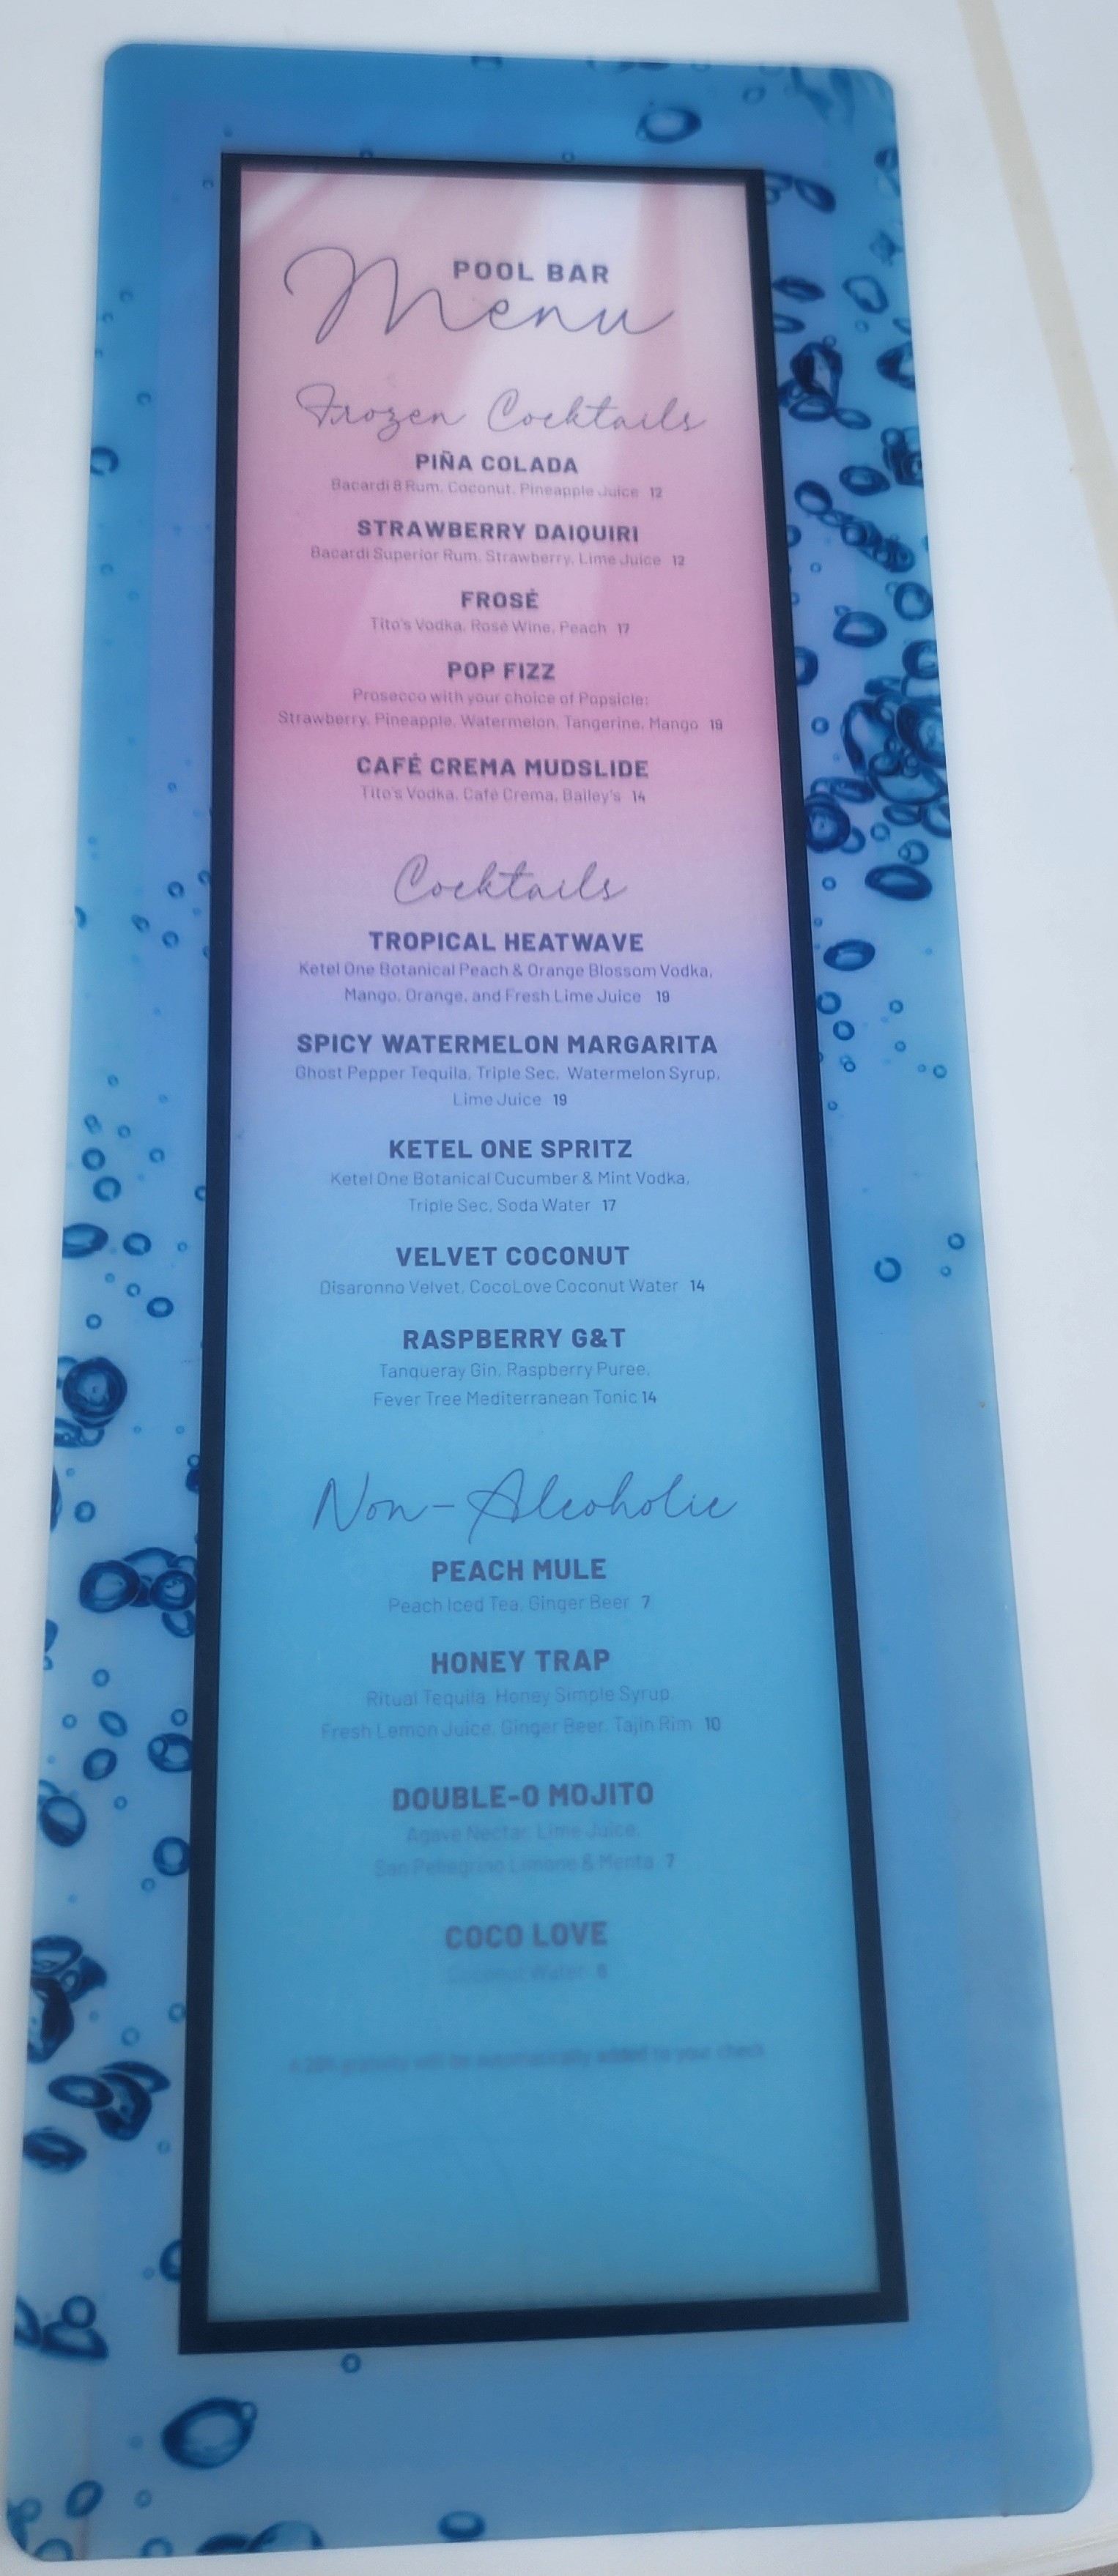 POOL BAR
Menu
Frozen Cocktails
PIÑA COLADA
Bacardi 8 Rum, Coconut, Pineapple Juice 12
STRAWBERRY DAIQUIRI
Bacardi Superior Rum, Strawberry, Lime Juice 12
FROSÉ
Tito's Vodka, Rosé Wine, Peach 17
POP FIZZ
Prosecco with your choice of Popsicle:
Strawberry, Pineapple, Watermelon, Tangerine, Mango 19
CAFÉ CREMA MUDSLIDE
Tito's Vodka, Café Crema, Bailey's 14
Cocktails
TROPICAL HEATWAVE
Ketel One Botanical Peach & Orange Blossom Vodka,
Mango, Orange, and Fresh Lime Juice 19
SPICY WATERMELON MARGARITA
Ghost Pepper Tequila, Triple Sec, Watermelon Syrup,
Lime Juice 19
KETEL ONE SPRITZ
Ketel One Botanical Cucumber & Mint Vodka,
Triple Sec, Soda Water 17
VELVET COCONUT
Disaronno Velvet, CocoLove Coconut Water 14
RASPBERRY G&T
Tanqueray Gin, Raspberry Puree,
Fever Tree Mediterranean Tonic 14
Non-Alcoholic
PEACH MULE
Peach Iced Tea, Ginger Beer 7
HONEY TRAP
Ritual Tequila, Honey Simple Syrup,
Fresh Lemon Juice, Ginger Beer, Tajin Rim 10
DOUBLE-O MOJITO
Agave Nectar, Lime Juice,
San Pellegrino Limone & Menta 7
COCO LOVE
Coconut Water
gratuity will be automatically added to your check